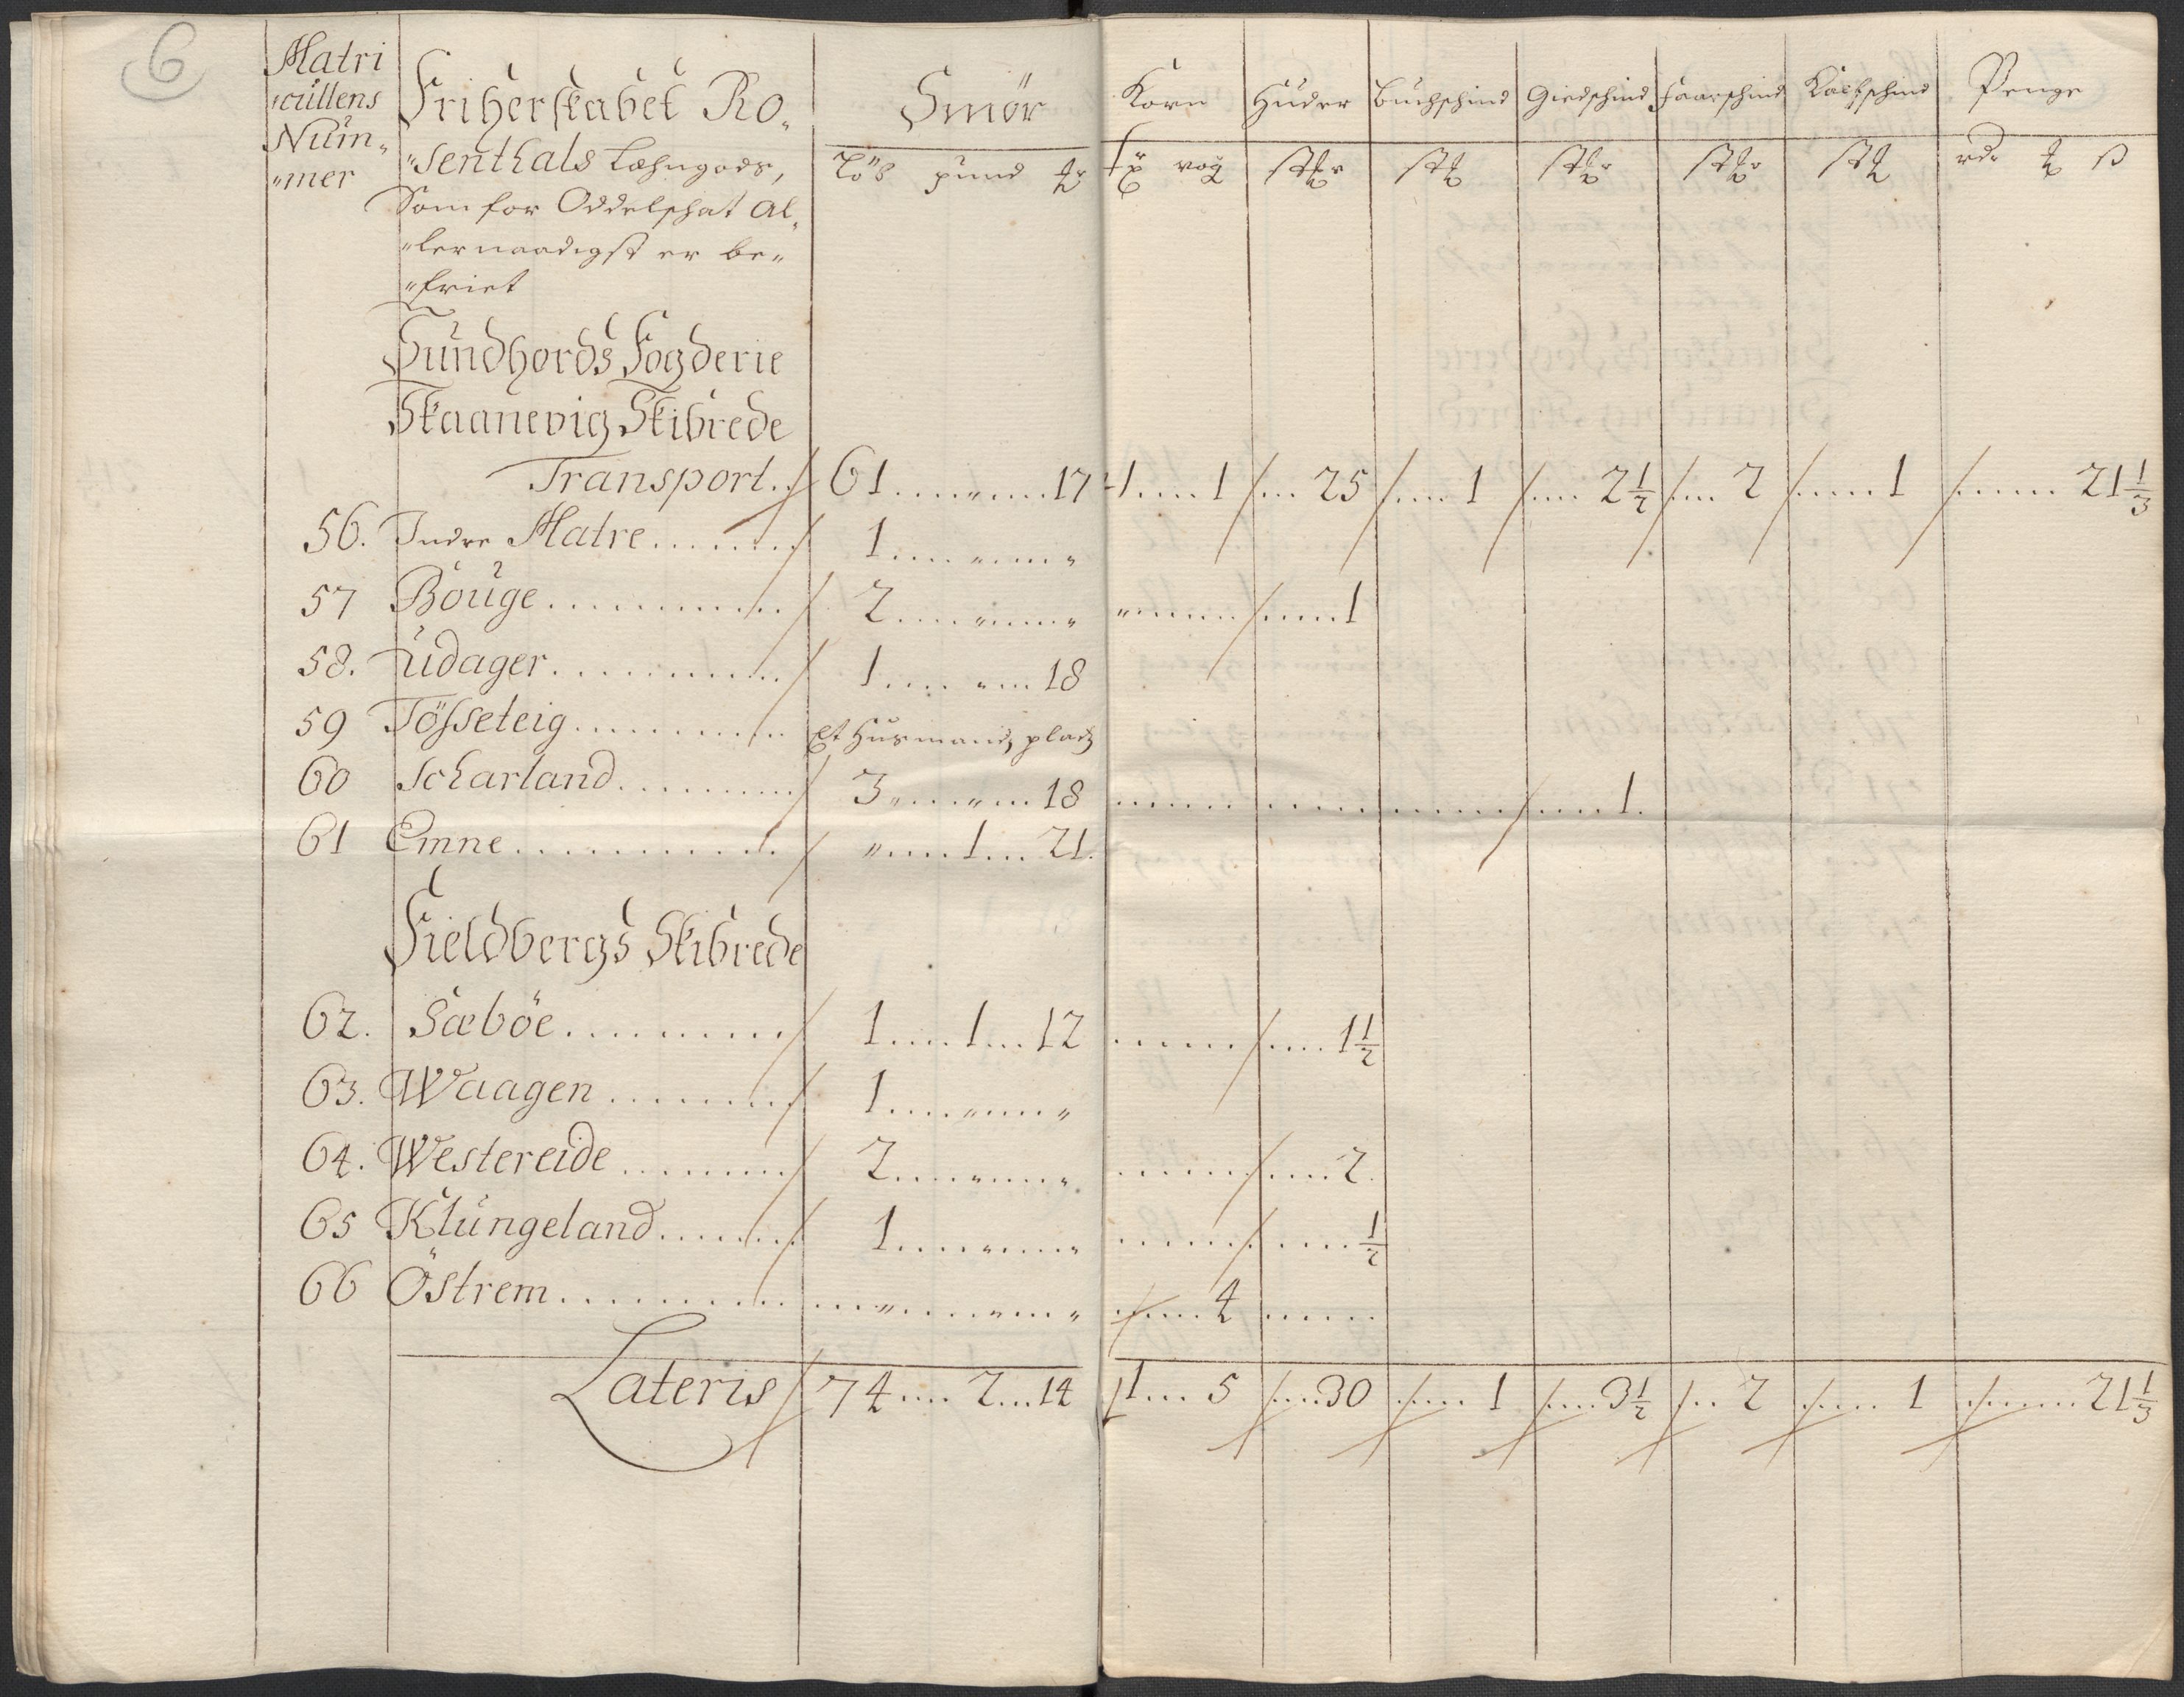 6
Matri
"cullens
Num„
"mer
Friherskabet Ro„
"senthals Læhngods,
Som for Oddelschat Al„
"lernaadigst er be„
"friet
Smör
Löb pund
Korn Huder Buchschind Giedschind Faarschind Kalfschind Penge
Sundhords Fogderie
Skaanevig Skibrede
Transport. 61 .... " .... 17 1 .... 1 25 1 2½ 2 1 21⅓
56. Indre Matre ........ 1 .... " .... "
57 Bouge ............ 2 .... " .... " " ...... 1
58. Udager ............ 1 .... " ... 18
59 Tösseteig ............ Et Husmands pladz
60 Scharland ............ 3 .... " ... 18 ............ 1.
61 Emne ............ " .... 1 ... 21.
Fieldbergs Skibrede
62. Sæböe ............ 1 .... 1 ... 12 ...... 1½
63. Waagen ........ 1 .... " .... "
64. Westereide ........ 2 .... " .... " ...... 2.
65 Klungeland ........ 1 .... " .... " ...... ½
66 Östrem ............ " .... " .... " .... 4 ......
Lateris 74 .... 2 ... 14 1 ... 5 30 1 3½ 2 1 21⅓